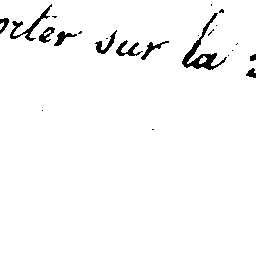 orter sur la